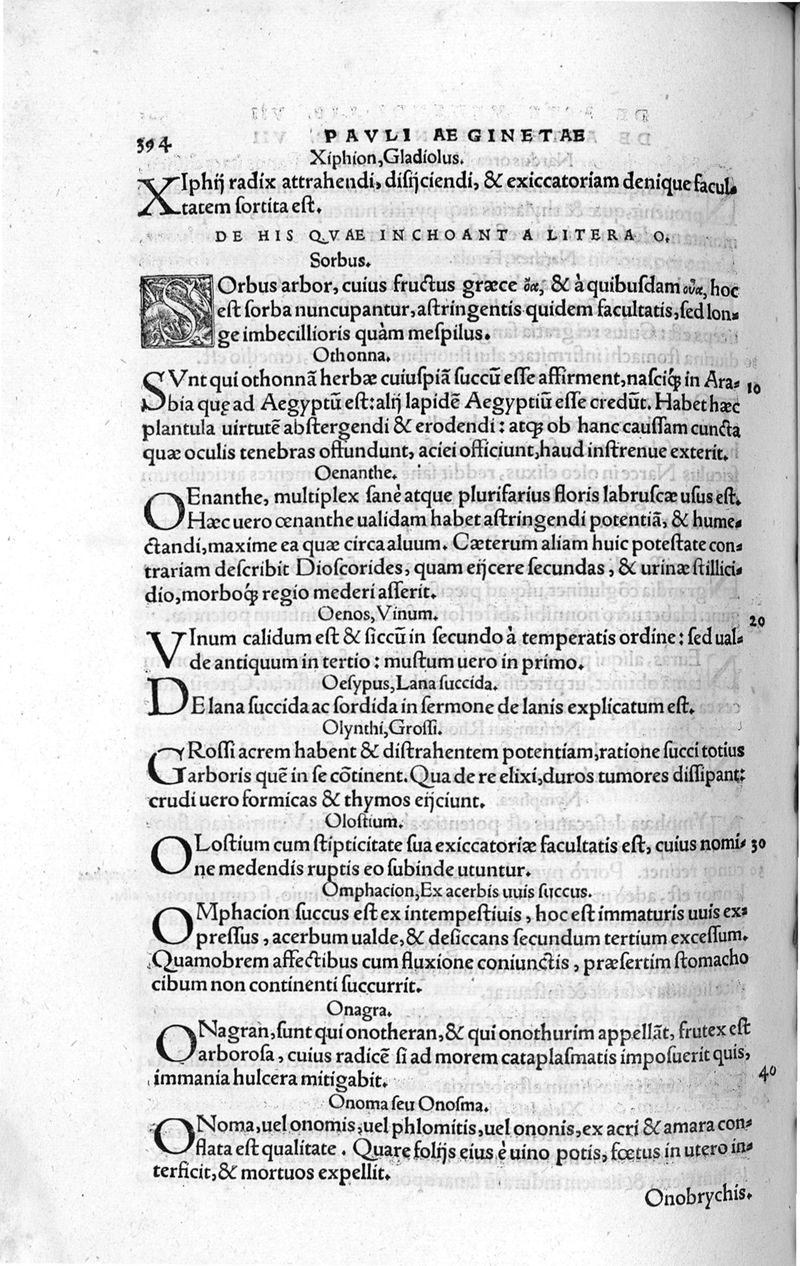 394 PAVLI AEGINETAE
Xiphion, Gladiolus.
XIphij radix attrahendi, disijciendi, & exiccatoriam denique facul⸗
tatem sortita est.
DE HIS QVAE INCHOANT A LITERA O.
Sorbus.
SOrbus arbor, cuius fructus græce ὄα, & à quibusdam οὖα, hoc
est sorba nuncupantur, astringentis quidem facultatis, sed lon⸗
ge imbecillioris quàm mespilus.
Othonna.
SVnt qui othonnā herbæ cuiuspiā succū esse affirment, nasciq; in Ara⸗ 10
bia que ad Aegyptū est: alij lapidē Aegyptiū esse credūt. Habet hæc
plantula uirtutē abstergendi & erodendi: atq; ob hanc caussam cuncta
quæ oculis tenebras offundunt, aciei officiunt, haud instrenue exterit.
Oenanthe.
OEnanthe, multiplex sanè atque plurifarius floris labruscæ usus est.
Hæc uero œnanthe ualidam habet astringendi potentiā, & hume⸗
ctandi, maxime ea quæ circa aluum. Cæterum aliam huic potestate con⸗
trariam describit Dioscorides, quam eijcere secundas, & urinæ stillici⸗
dio, morboq; regio mederi asserit.
Oenos, Vinum. 20
VInum calidum est & siccū in secundo à temperatis ordine: sed ual⸗
de antiquum in tertio: mustum uero in primo.
Oesypus, Lana succida.
DE lana succida ac sordida in sermone de lanis explicatum est.
Olynthi, Grossi.
GRossi acrem habent & distrahentem potentiam, ratione succi totius
arboris quē in se cōtinent. Qua de re elixi, duros tumores dissipant:
crudi uero formicas & thymos eijciunt.
Olostium.
OLostium cum stipticitate sua exiccatoriæ facultatis est, cuius nomi⸗ 30
ne medendis ruptis eo subinde utuntur.
Omphacion, Ex acerbis uuis succus.
OMphacion succus est ex intempestiuis, hoc est immaturis uuis ex⸗
pressus, acerbum ualde, & desiccans secundum tertium excessum.
Quamobrem affectibus cum fluxione coniunctis, præsertim stomacho
cibum non continenti succurrit.
Onagra.
ONagran, sunt qui onotheran, & qui onothurim appellāt, frutex est
arborosa, cuius radicē si ad morem cataplasmatis imposuerit quis,
immania hulcera mitigabit. 40
Onoma seu Onosma.
ONoma, uel onomis, uel phlomitis, uel ononis, ex acri & amara con⸗
flata est qualitate. Quare folijs eius è uino potis, fœtus in utero in⸗
terficit, & mortuos expellit.
Onobrychis.